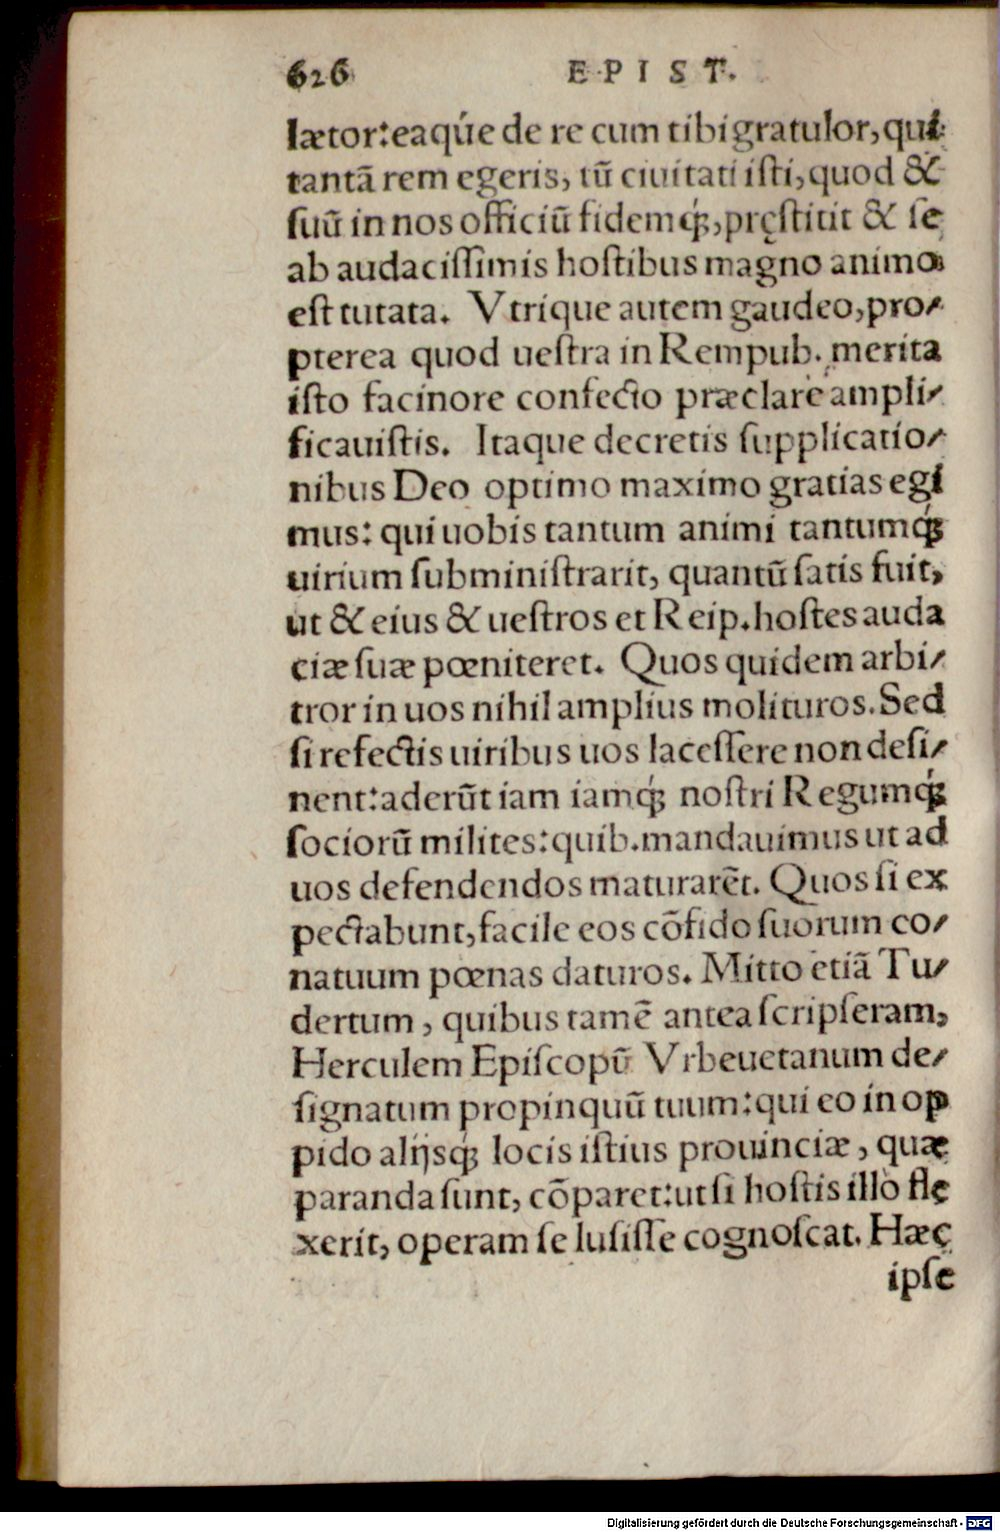 626 EPIST.
lætor: eaq́ue de re cum tibi gratulor, qui
tantã rem egeris, tũ ciuitati isti, quod &
suũ in nos officiũ fidemq́;, pręstitit & se
ab audacissimis hostibus magno animo
est tutata. Vtrique autem gaudeo, pro-
pterea quod uestra in Rempub. merita
isto facinore confecto præclarè ampli-
ficauistis. Itaque decretis supplicatio-
nibus Deo optimo maximo gratias egi
mus: qui uobis tantum animi tantumq́;
uirium subministrarit, quantũ satis fuit,
ut & eius & uestros et Reip. hostes auda
ciæ suæ pœniteret. Quos quidem arbi-
tror in uos nihil amplius molituros. Sed
si refectis uiribus uos lacessere non desi-
nent: aderũt iam iamq́; nostri Regumq́;
sociorũ milites: quib. mandauimus ut ad
uos defendendos maturarẽt. Quos si ex
pectabunt, facile eos cõfido suorum co-
natuum pœnas daturos. Mitto etiã Tu-
dertum, quibus tamẽ antea scripseram,
Herculem Episcopũ Vrbeuetanum de-
signatum propinquũ tuum: qui eo in op
pido alijsq́; locis istius prouinciæ, quæ
paranda sunt, cõparet: ut si hostis illò fle
xerit, operam se lusisse cognoscat. Hæc
ipse
Digitalisierung gefördert durch die Deutsche Forschungsgemeinschaft - DFG